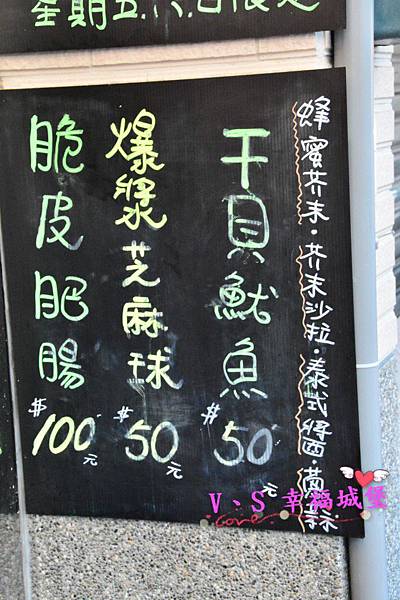 星期五.六.日限定
蜂蜜芥末·芥末沙拉·泰式醬·黃蒜
干貝魷魚
$50元
爆漿芝麻球
$50元
脆皮肥腸
$100元
V、S 幸福城堡
Love